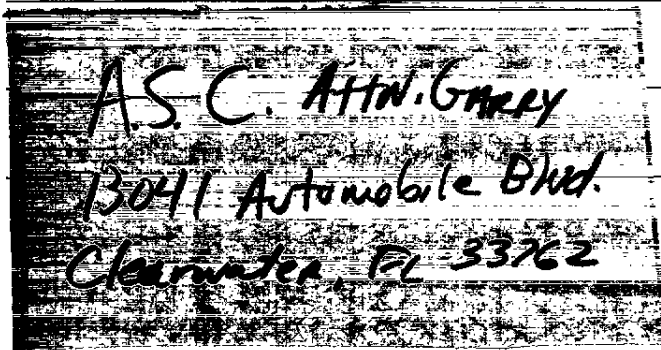 A.S.C. Attn. Garry
13041 Automobile Blvd.
Clearwater, FL 33762